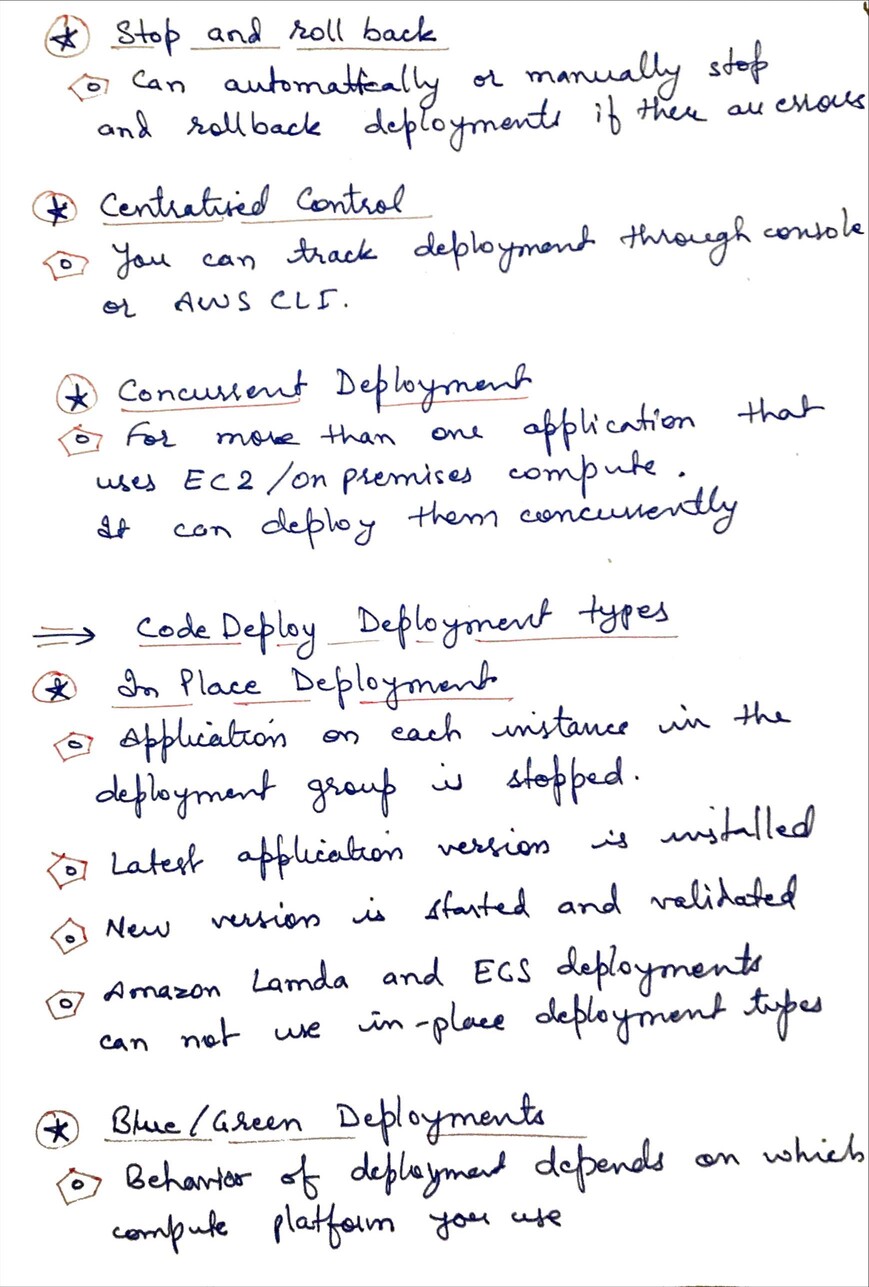 Stop and roll back
Can automatically or manually stop
and rollback deployments if there are errors
Centralised Control
You can track deployment through console
or AWS CLI.
Concurrent Deployment
For more than one application that
uses EC2 / on premises compute.
It can deploy them concurrently
⇒ Code Deploy Deployment types
In Place Deployment
Application on each instance in the
deployment group is stopped.
Latest application version is installed
New version is started and validated
Amazon Lamda and ECS deployments
can not use in-place deployment types
Blue/Green Deployments
Behavior of deployment depends on which
compute platform you use